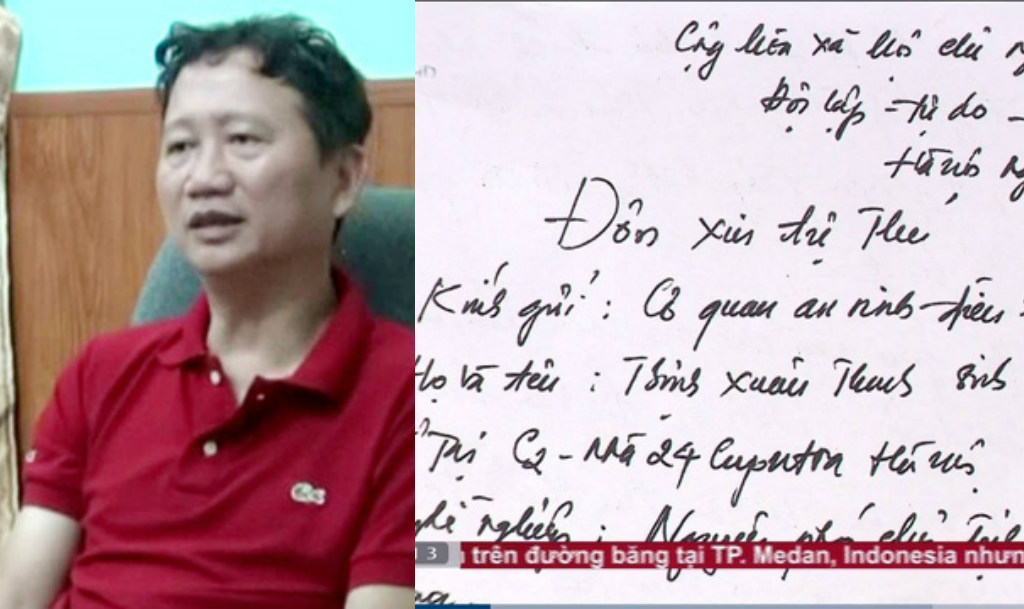 Cộng hòa xã hội chủ ng
Độc lập - tự do -
Hà nội ng
Đơn xin tự Thú
Kính gửi : Cơ quan an ninh - điều
Họ và tên : Trịnh Xuân Thanh sinh
Tại C2 - Nhà 24 Cuputra Hà nội
nghề nghiệp : Nguyên phó chủ Tịch
13 trên đường băng tại TP. Medan, Indonesia nhưn